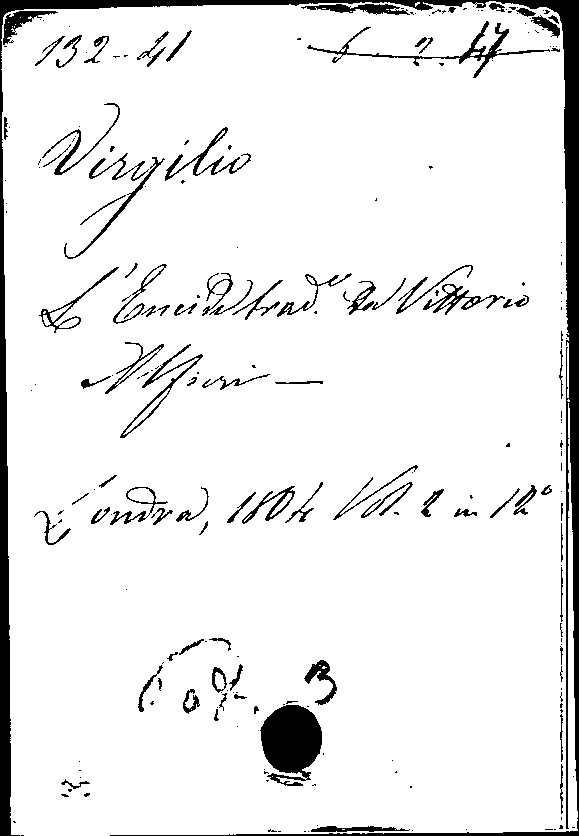 132-41 6. 2. 47
Virgilio
L'Eneide trad.e da Vittorio
Alfieri —
Londra, 1804 Vol. 2 in 12°
B